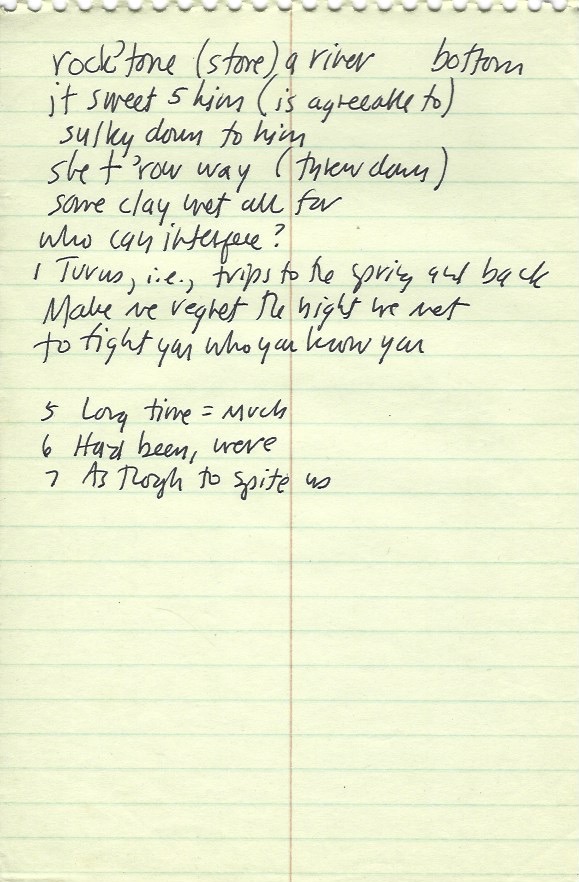 rock'tone (stone) a river bottom
it sweet 5 him (is agreeable to)
sulky down to him
she t'row way (threw down)
some clay wet all for
who can interfere?
1 Turus, i.e., trips to the spring and back
Make we regret the night we met
to fight you who you know you
5 Long time = Much
6 Had been, were
7 As though to spite us